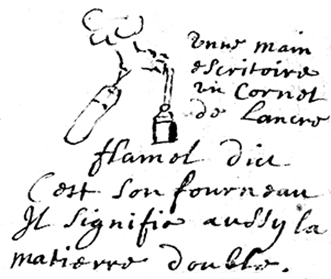 vnne main
escritoire
vn Cornet
de Lancre
flamel dict
Cest Son fourneau
Jl Signifie aussy la
matierre double.